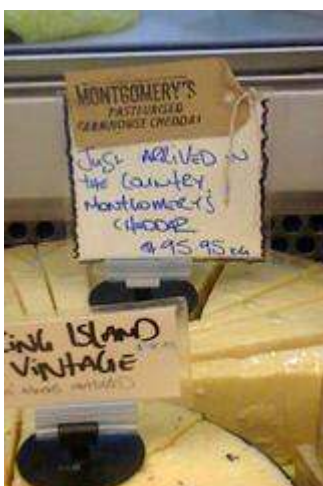 MONTGOMERY'S
PASTEURISED
FARMHOUSE CHEDDAR
JUST ARRIVED IN
the COUNTRY,
MONTGOMERY'S
CHEDDAR
$95.95 KG
ING ISLAND
VINTAGE